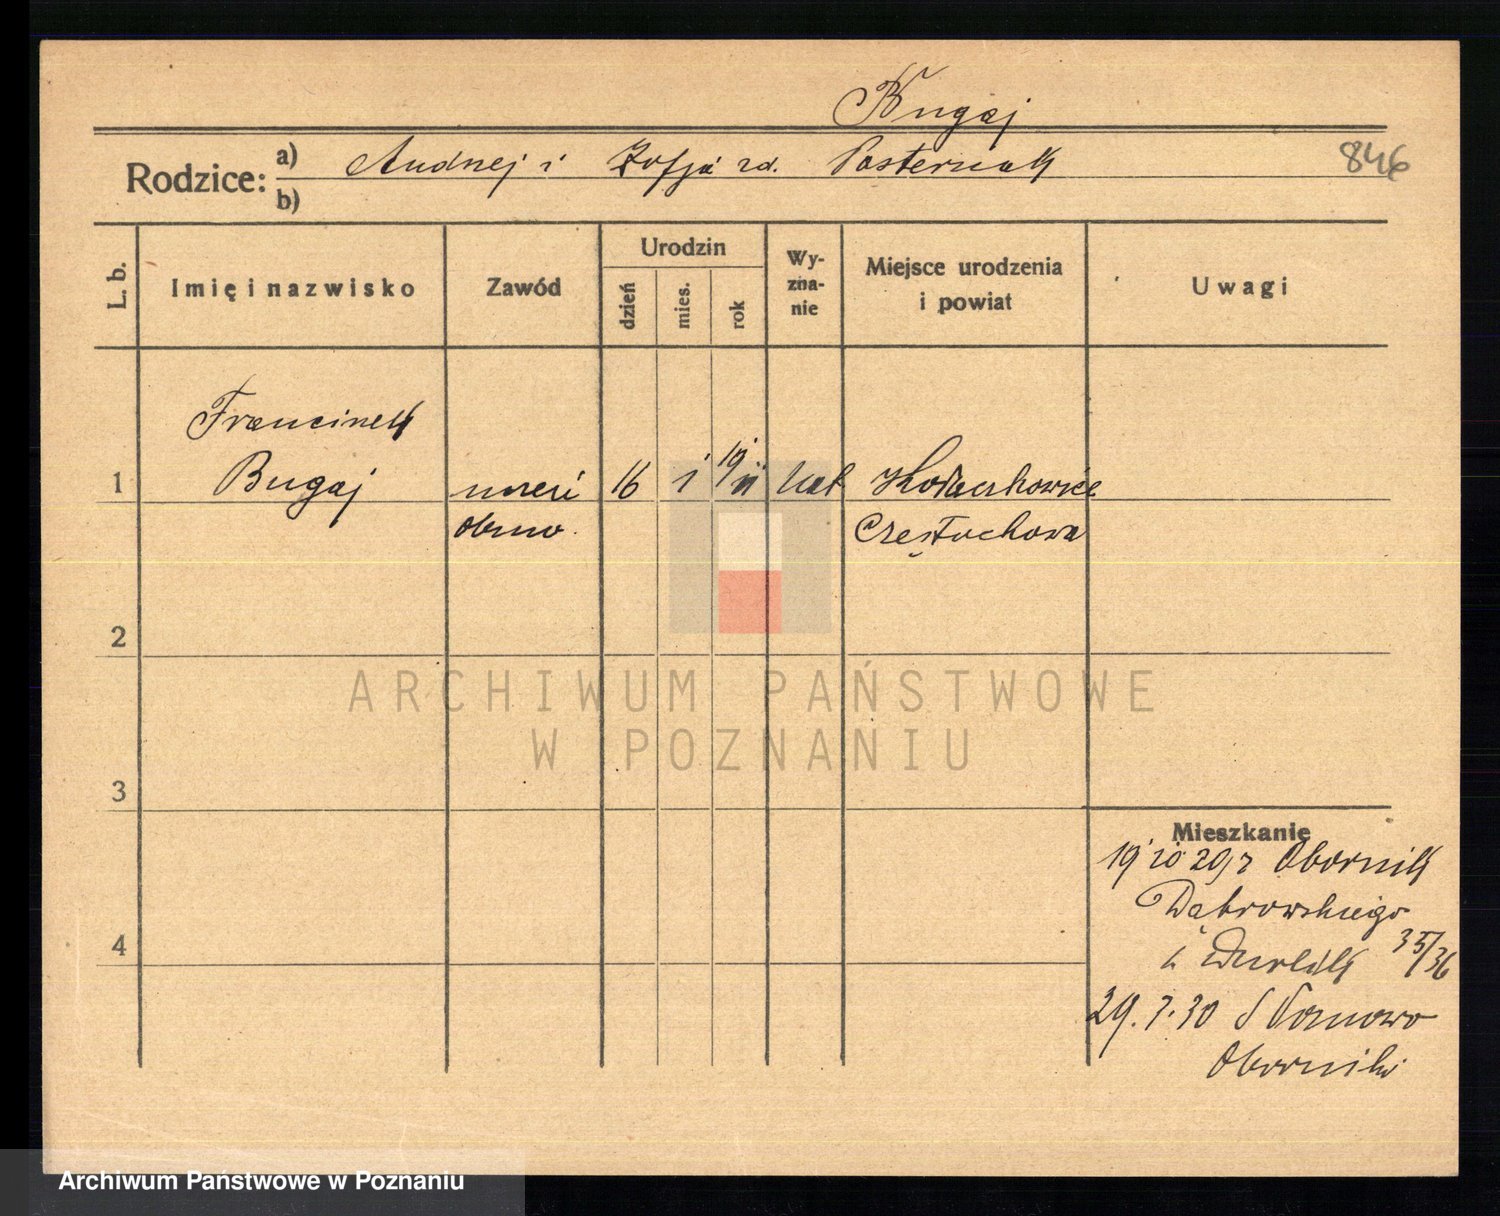 Bugaj
Rodzice: a) Andrzej i Zofja zd. Pasternak
b)
846
L. b.
Imię i nazwisko
Zawód
Urodzin
dzień
mies.
rok
Wy-
zna-
nie
Miejsce urodzenia
i powiat
Uwagi
Franciszek
1 Bugaj
16 1 19 11 kat
Częstochowa
2
3
4
Mieszkanie
19 10 29 z Obornik
Dąbrowskiego
35/36
29.7.30
Oborniki
ARCHIWUM PAŃSTWOWE
W POZNANIU
Archiwum Państwowe w Poznaniu